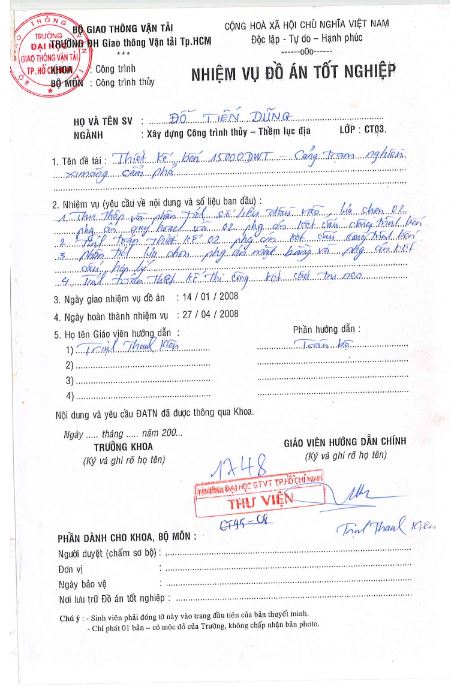 BỘ GIAO THÔNG VẬN TẢI
TRƯỜNG ĐH Giao thông Vận tải Tp.HCM
KHOA : Công trình
BỘ MÔN : Công trình thủy
TRƯỜNG
ĐẠI HỌC
GIAO THÔNG VẬN TẢI
TP. HỒ CHÍ MINH
CỘNG HOÀ XÃ HỘI CHỦ NGHĨA VIỆT NAM
Độc lập - Tự do – Hạnh phúc
------o0o------
***
NHIỆM VỤ ĐỒ ÁN TỐT NGHIỆP
HỌ VÀ TÊN SV : ĐỖ TIẾN DŨNG
NGÀNH : Xây dựng Công trình thủy – Thềm lục địa LỚP : CT03.
1. Tên đề tài : Thiết kế bến 15000 DWT – Cảng trạm nghiền
ximăng Cẩm Phả
2. Nhiệm vụ (yêu cầu về nội dung và số liệu ban đầu) :
1. Thu thập và phân tích số liệu đầu vào, lựa chọn 02
phg án quy hoạch và 02 phg án kết cấu công trình bến
2. Tính toán thiết kế 02 phg án kết cấu công trình bến
3. Phân tích lựa chọn phg án mặt bằng và phg án kết
cấu hợp lý
4. thiết kế thi công kết cấu
3. Ngày giao nhiệm vụ đồ án : 14 / 01 / 2008
4. Ngày hoàn thành nhiệm vụ : 27 / 04 / 2008
5. Họ tên Giáo viên hướng dẫn : Phần hướng dẫn :
1) Trịnh Thanh Kiên Toàn bộ
2)
3)
4)
Nội dung và yêu cầu ĐATN đã được thông qua Khoa.
Ngày ..... tháng ..... năm 200...
TRƯỞNG KHOA GIÁO VIÊN HƯỚNG DẪN CHÍNH
(Ký và ghi rõ họ tên) (Ký và ghi rõ họ tên)
1748
TRƯỜNG ĐẠI HỌC GTVT TP.HỒ CHÍ MINH
THƯ VIỆN
CT45-08
Trịnh Thanh Kiên
PHẦN DÀNH CHO KHOA, BỘ MÔN :
Người duyệt (chấm sơ bộ) :
Đơn vị :
Ngày bảo vệ :
Nơi lưu trữ Đồ án tốt nghiệp :
Chú ý : - Sinh viên phải đóng tờ này vào trang đầu tiên của bản thuyết minh.
- Chỉ phát 01 bản – có mộc đỏ của Trường, không chấp nhận bản photo.